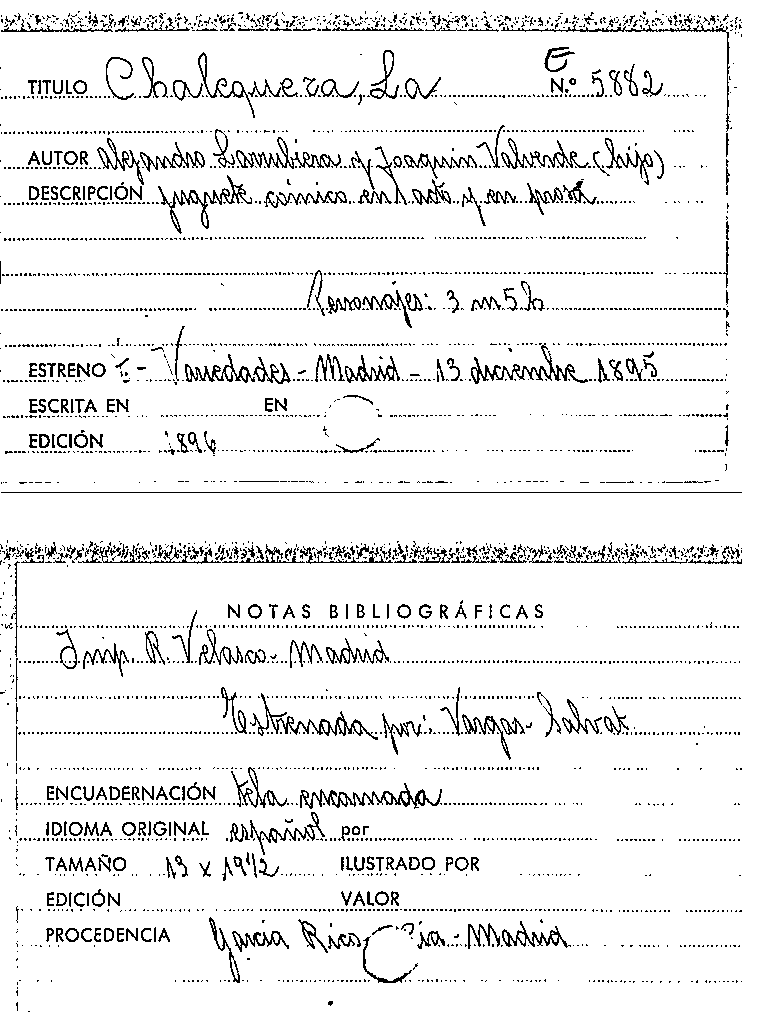 E
TITULO Chalequera, La N.º 5882
AUTOR Alejandro Larrubiera y Joaquin Valverde (hijo)
DESCRIPCIÓN juguete cómico en 1 acto y en prosa
Personajes: 3 m 5 h
ESTRENO T. - Variedades - Madrid - 13 diciembre 1895
ESCRITA EN EN
EDICIÓN 1896
NOTAS BIBLIOGRÁFICAS
Imp. R. Velasco - Madrid
Estrenada por: Vargas - Salvat
ENCUADERNACIÓN tela encarnada
IDIOMA ORIGINAL español por
TAMAÑO 13 x 19 1/2 ILUSTRADO POR
EDICIÓN VALOR
PROCEDENCIA García Rico - Madrid